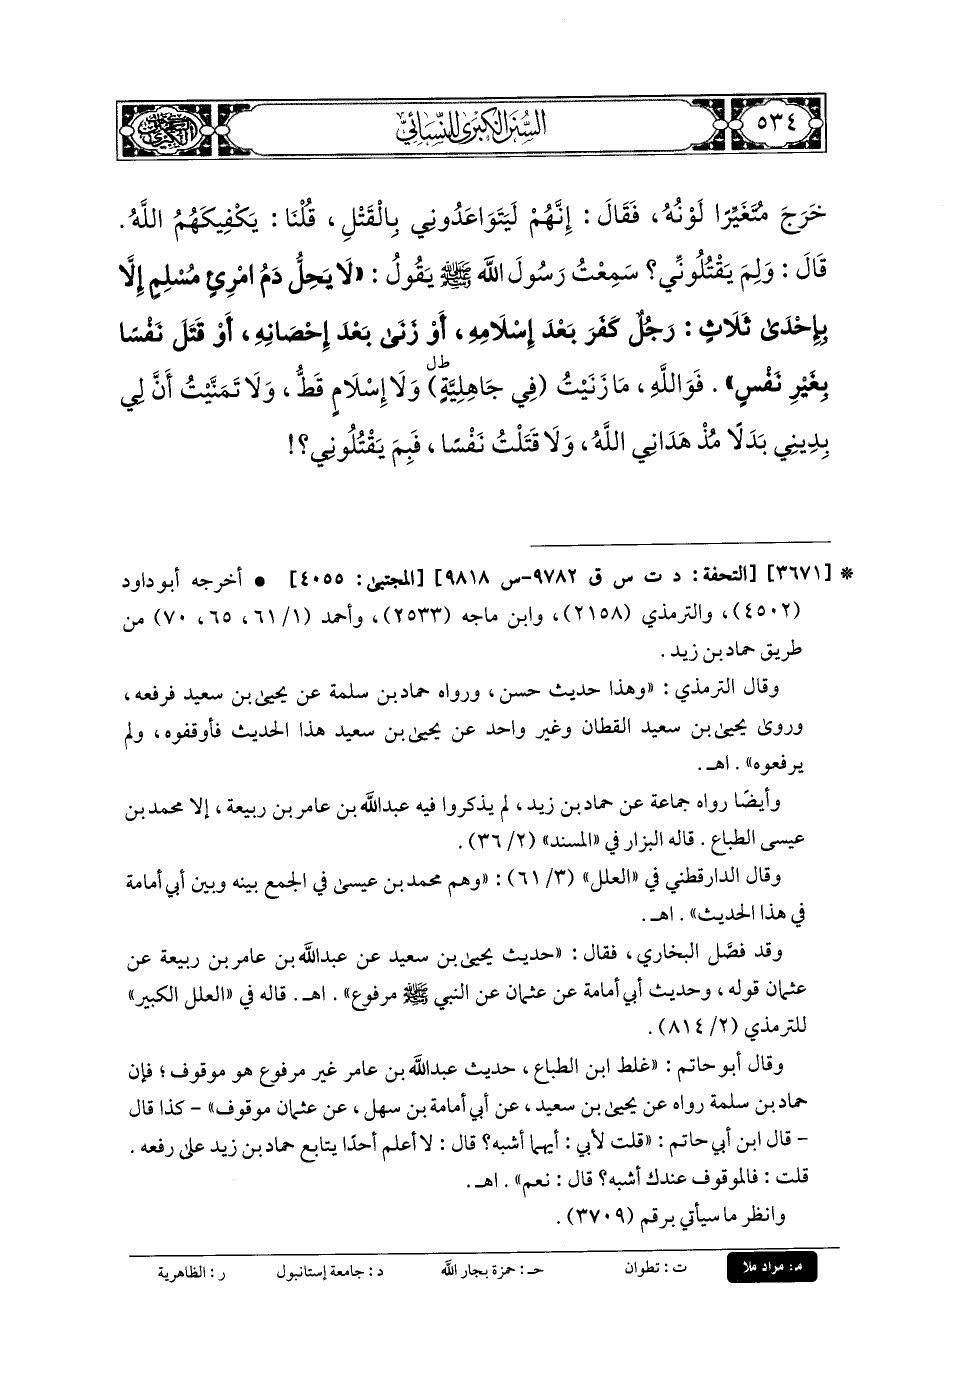 ٥٣٤
السنن الكبرى للنسائي
خَرَجَ مُتَغَيِّرًا لَوْنُهُ، فَقَالَ : إِنَّهُمْ لَيَتَوَاعَدُونِي بِالْقَتْلِ، قُلْنَا : يَكْفِيكَهُمُ اللَّهُ.
قَالَ : وَلِمَ يَقْتُلُونِّي؟ سَمِعْتُ رَسُولَ اللَّه ﷺ يَقُولُ : «لَا يَحِلُّ دَمُ امْرِئٍ مُسْلِمٍ إِلَّا
بِإِحْدَىٰ ثَلَاثٍ : رَجُلٌ كَفَرَ بَعْدَ إِسْلَامِهِ، أَوْ زَنَىٰ بَعْدَ إِحْصَانِهِ، أَوْ قَتَلَ نَفْسًا
بِغَيْرِ نَفْسٍ» . فَوَاللَّهِ، مَا زَنَيْتُ (فِي جَاهِلِيَّةٍ) وَلَا إِسْلَامٍ قَطُّ، وَلَا تَمَنَّيْتُ أَنَّ لِي
بِدِينِي بَدَلًا مُذْ هَدَانِي اللَّهُ، وَلَا قَتَلْتُ نَفْسًا، فَبِمَ يَقْتُلُونِي؟!
* [٣٦٧١] [التحفة: د ت س ق ٩٧٨٢-س ٩٨١٨] [المجتبىٰ: ٤٠٥٥] • أخرجه أبوداود
(٤٥٠٢)، والترمذي (٢١٥٨)، وابن ماجه (٢٥٣٣)، وأحمد (١/ ٦١، ٦٥، ٧٠) من
طريق حماد بن زيد .
وقال الترمذي : «وهذا حديث حسن، ورواه حماد بن سلمة عن يحيىٰ بن سعيد فرفعه،
وروىٰ يحيىٰ بن سعيد القطان وغير واحد عن يحيىٰ بن سعيد هذا الحديث فأوقفوه، ولم
يرفعوه» . اهـ.
وأيضًا رواه جماعة عن حماد بن زيد، لم يذكروا فيه عبدالله بن عامر بن ربيعة، إلا محمد بن
عيسى الطباع . قاله البزار في «المسند» (٢/ ٣٦).
وقال الدارقطني في «العلل» (٣/ ٦١) : «وهم محمد بن عيسىٰ في الجمع بينه وبين أبي أمامة
في هذا الحديث» . اهـ.
وقد فصَّل البخاري، فقال : «حديث يحيىٰ بن سعيد عن عبدالله بن عامر بن ربيعة عن
عثمان قوله، وحديث أبي أمامة عن عثمان عن النبي ﷺ مرفوع» . اهـ. قاله في «العلل الكبير»
للترمذي (٢/ ٨١٤).
وقال أبو حاتم : «غلط ابن الطباع، حديث عبدالله بن عامر غير مرفوع هو موقوف؛ فإن
حماد بن سلمة رواه عن يحيىٰ بن سعيد، عن أبي أمامة بن سهل، عن عثمان موقوف» - كذا قال
- قال ابن أبي حاتم : «قلت لأبي : أيهما أشبه؟ قال : لا أعلم أحدًا يتابع حماد بن زيد على رفعه .
قلت : فالموقوف عندك أشبه؟ قال : نعم» . اهـ.
وانظر ما سيأتي برقم (٣٧٠٩).
م: مراد ملا ت: تطوان حـ: حمزة بجار الله د: جامعة إستانبول ر: الظاهرية